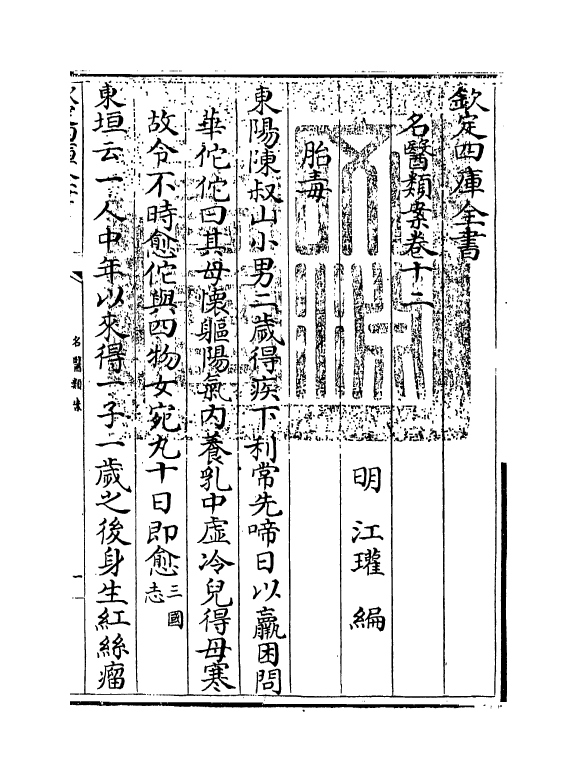 欽定四庫全書
名醫類案卷十二
明 江瓘 編
胎毒
東陽陳叔山小男二歲得疾下利常先啼日以羸困問
華佗佗曰其母懷軀陽氣内養乳中虛冷兒得母寒
故令不時愈佗與四物女宛丸十日即愈三國志
東垣云一人中年以來得一子一歲之後身生紅絲瘤
名醫類案
一